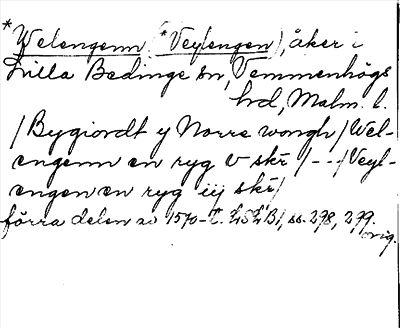 *Welengenn (*Veylengen), åker i
Lilla Bedinge sn, Vemmenhögs
hd, Malm. l.
/Bygiordt y Norre wongh/Wel-
engenn en ryg v skr/--/Veyl-
engen en ryg iij skr/
förra delen av 1570-t. LSLB1, ss. 278, 279.
orig.